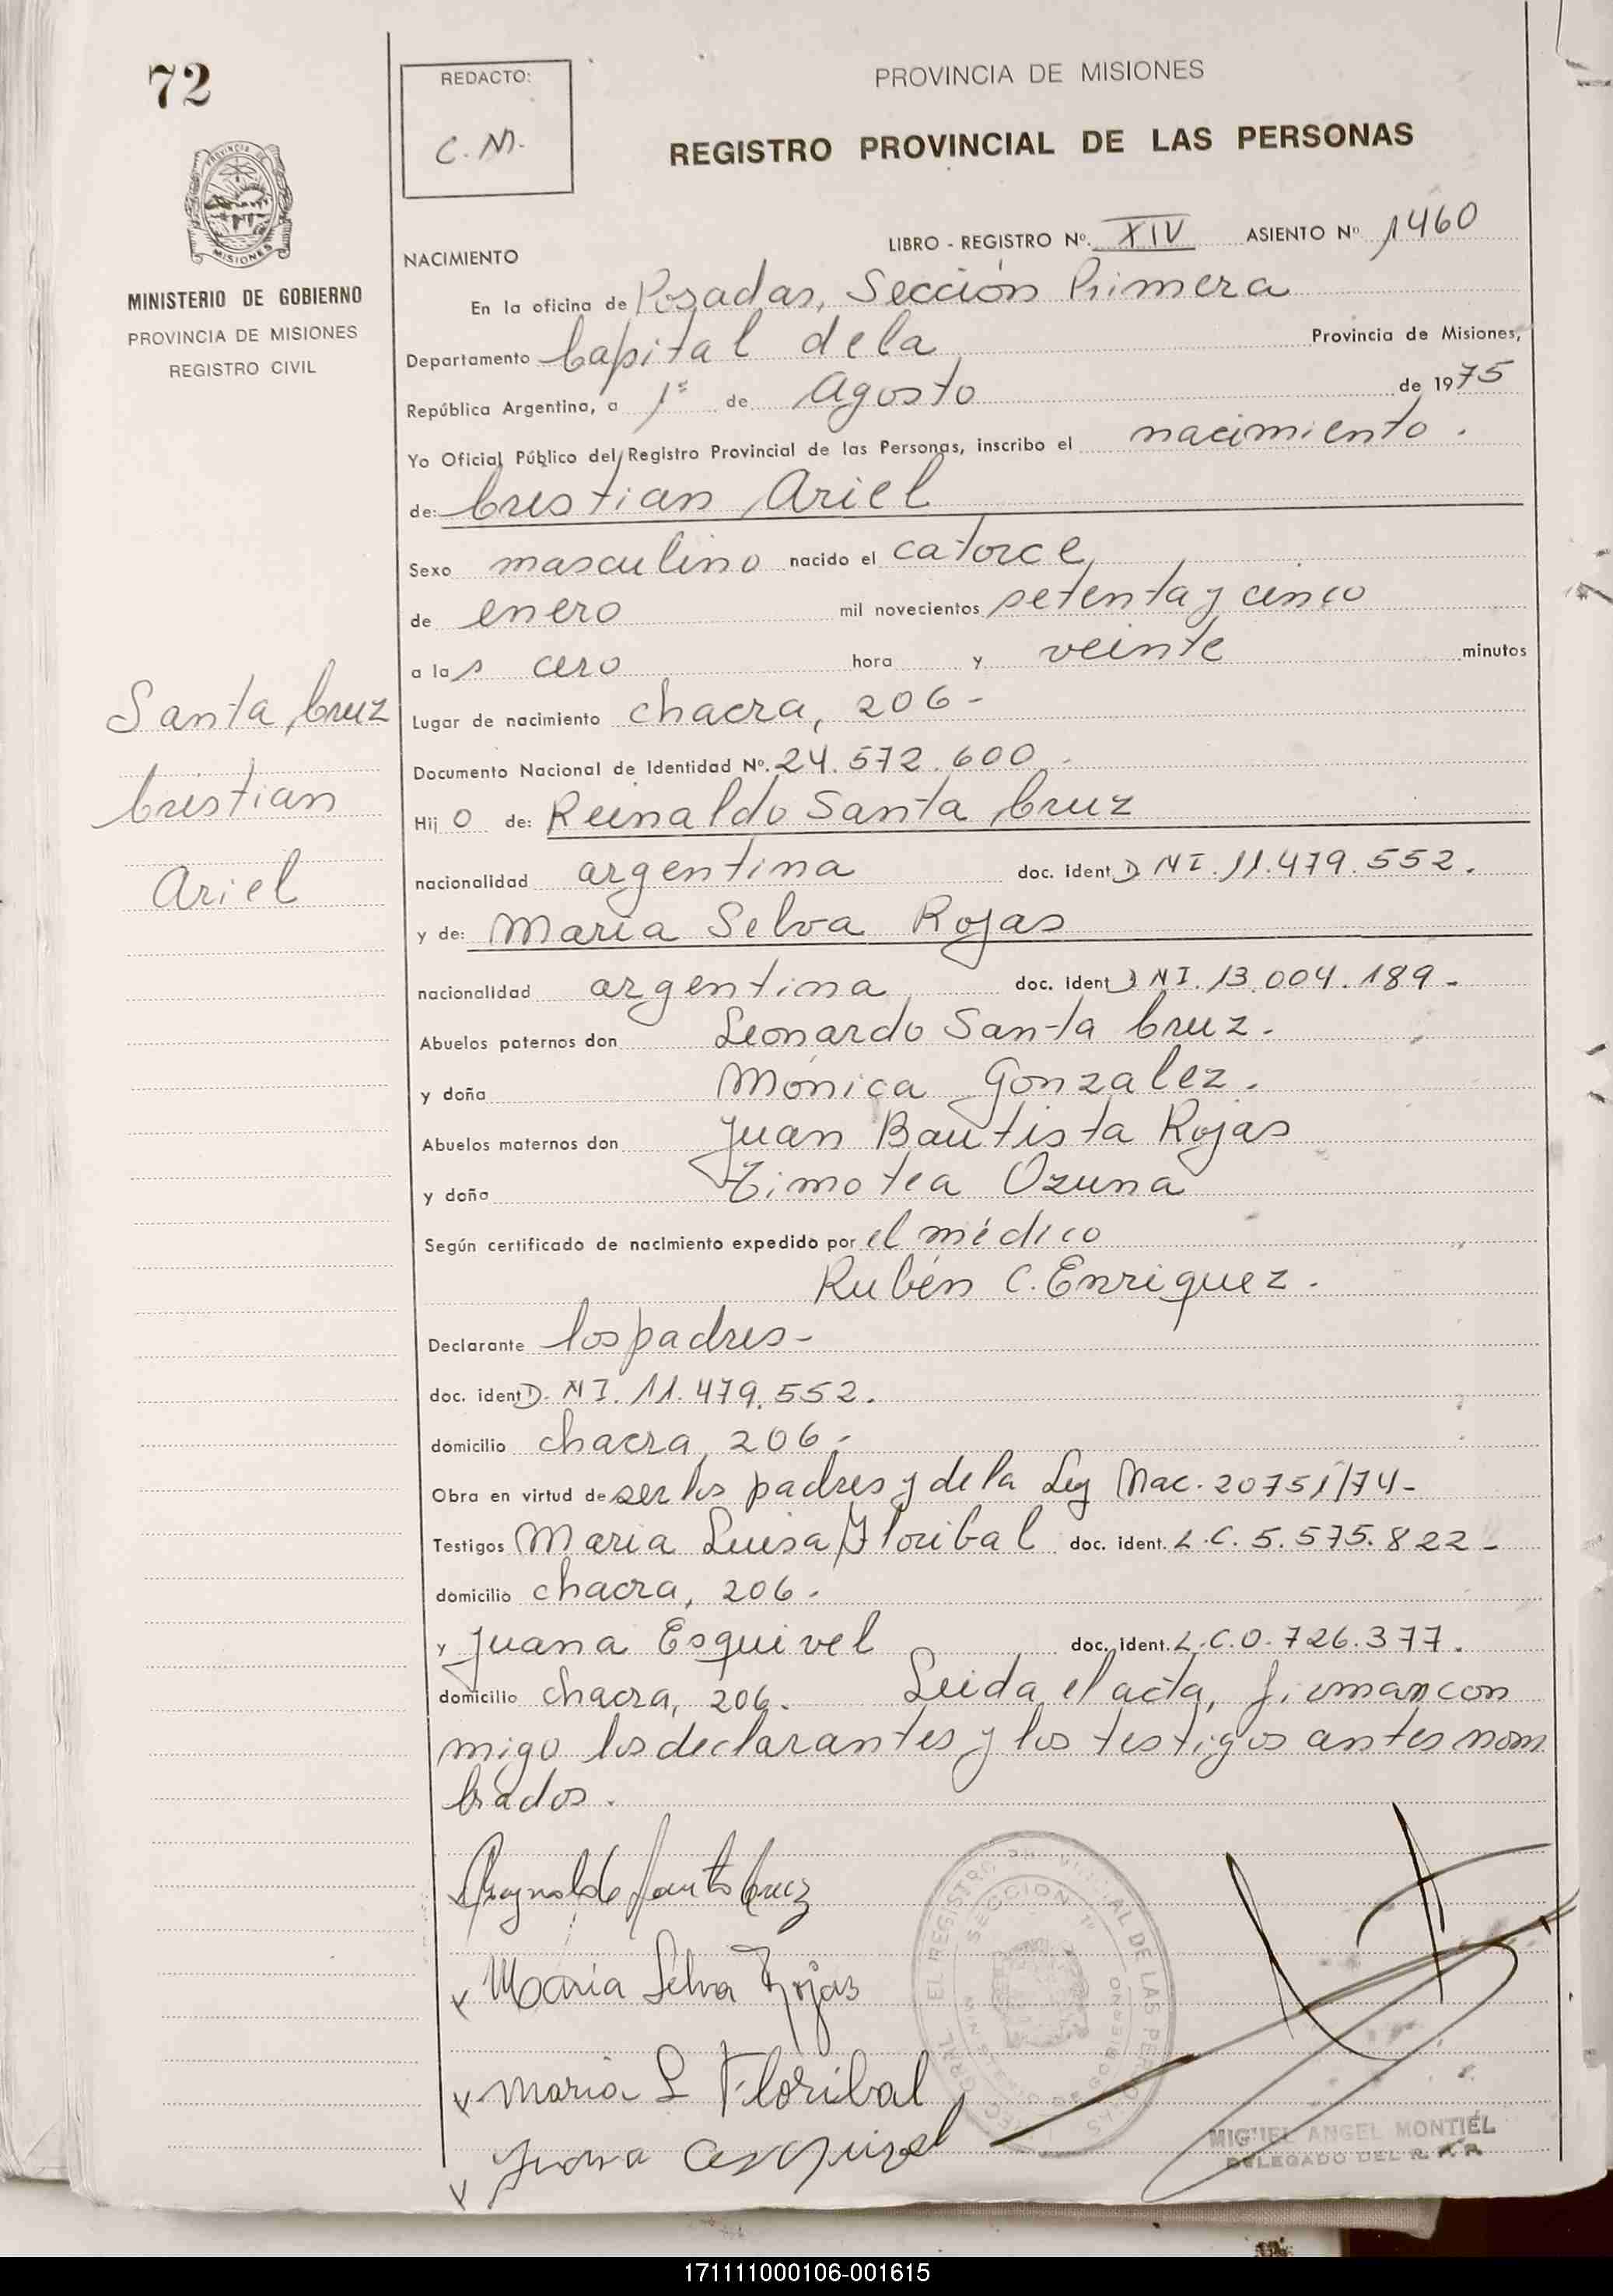 72
REDACTO:
C.M.
PROVINCIA DE MISIONES
REGISTRO PROVINCIAL DE LAS PERSONAS
PROVINCIA DE
MISIONES
MINISTERIO DE GOBIERNO
PROVINCIA DE MISIONES
REGISTRO CIVIL
LIBRO - REGISTRO Nº. XIV ASIENTO Nº 1460
NACIMIENTO
En la oficina de Posadas, Sección Primera
Departamento Capital de la Provincia de Misiones,
República Argentina, a 1º de Agosto de 1975
Yo Oficial Público del Registro Provincial de las Personas, inscribo el nacimiento.
de: Cristian Ariel
Sexo masculino nacido el catorce
de enero mil novecientos setenta y cinco
a las cero hora y veinte minutos
Santa Cruz
Cristian
Ariel
Lugar de nacimiento chacra, 206-
Documento Nacional de Identidad Nº. 24.572.600-
Hijo de: Reinaldo Santa Cruz
nacionalidad argentina doc. ident D.N.I. 11.479.552.
y de: María Selva Rojas
nacionalidad argentina doc. ident D.N.I. 13.004.189-
Abuelos paternos don Leonardo Santa Cruz.
y doña Mónica Gonzalez.
Abuelos maternos don Juan Bautista Rojas
y doña Timotea Ozuna
Según certificado de nacimiento expedido por el médico
Rubén C. Enriquez.
Declarante los padres-
doc. ident D.N.I. 11.479.552.
domicilio chacra, 206.
Obra en virtud de ser los padres y de la Ley Nac. 20751/74-
Testigos María Luisa Floribal doc. ident. L.C. 5.575.822-
domicilio chacra, 206.
y Juana Esquivel doc. ident. L.C.0.726.377.
domicilio chacra, 206. Leida el acta, firman con
migo los declarantes y los testigos antes nom
brados.
Reynaldo Santa Cruz
x María Selva Rojas
x Maria L Floribal
x Juana Esquivel
SECCION 1ª
MIGUEL ANGEL MONTIEL
DELEGADO DEL R. P. P.
171111000106-001615